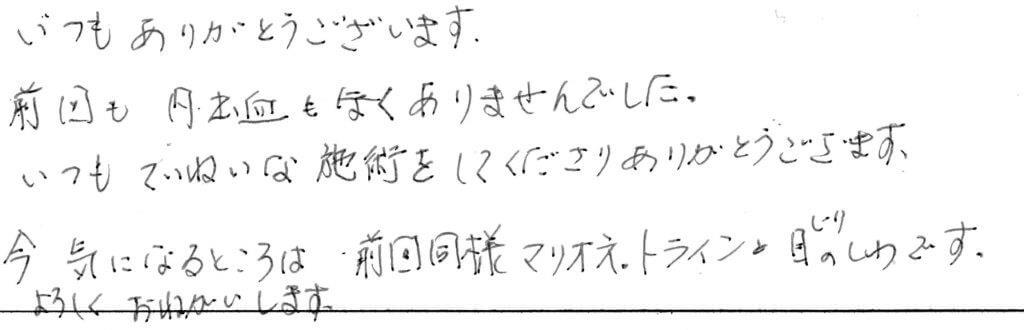 いつもありがとうございます.
前回も 内出血もなくありませんでした。
いつもていねいな施術をしてくださりありがとうございます、
今 気になるところは 前回同様 マリオネットラインと目じりのしわです.
よろしくおねがいします.